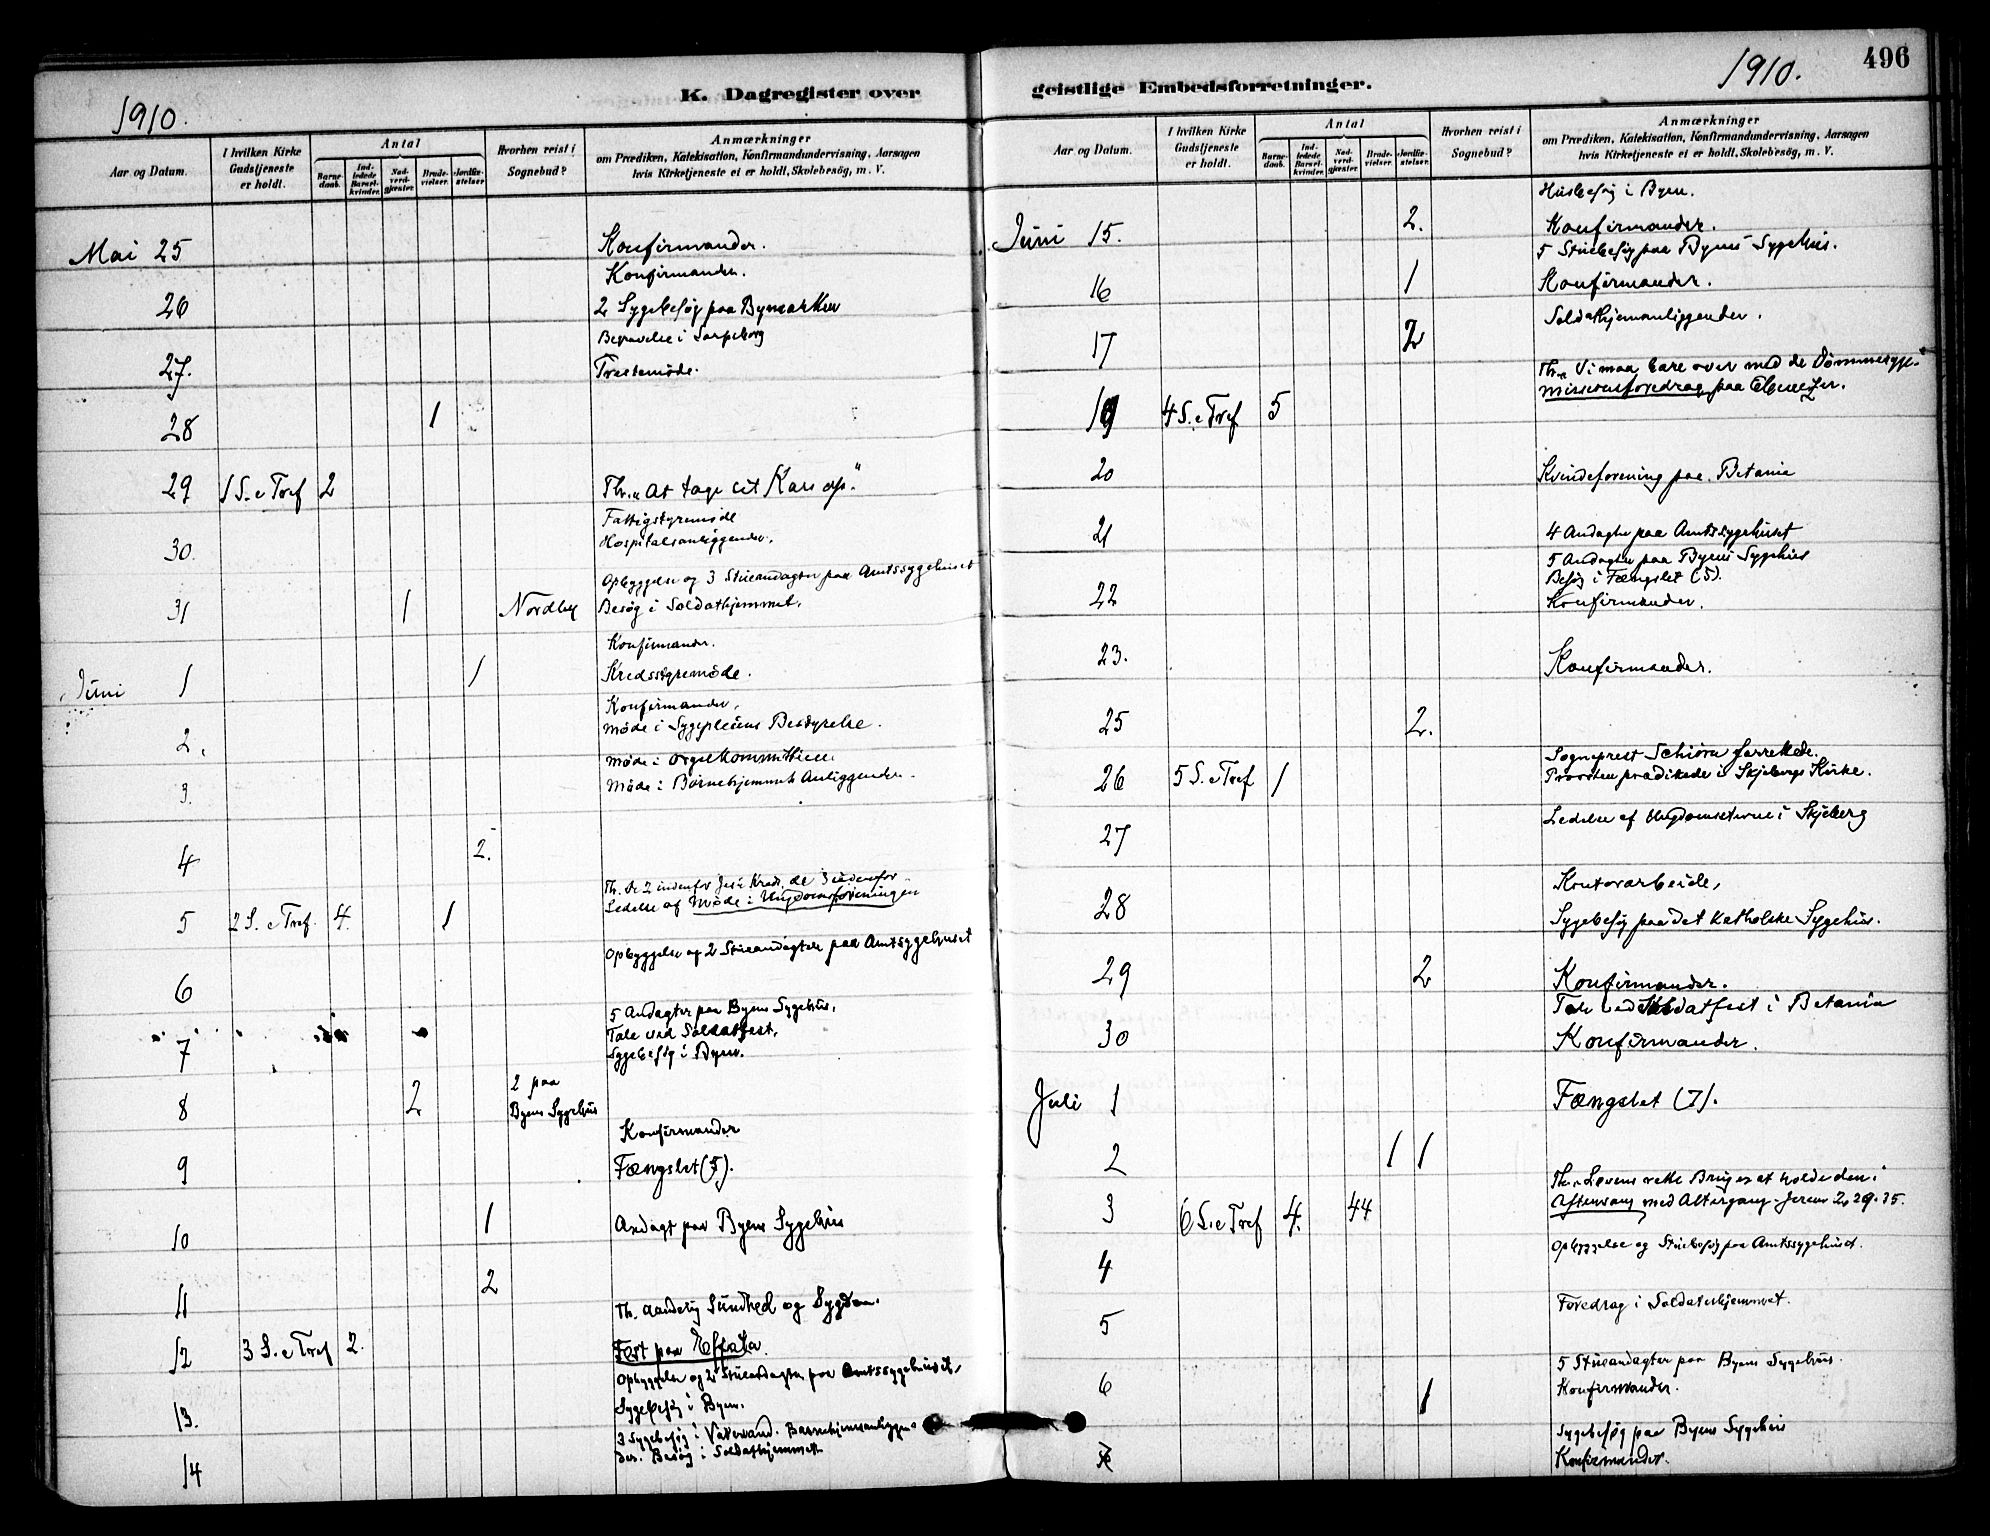 K. Dagregister over
1910.
Aar og Datum.
I hvilken Kirke Gudstjeneste er holdt.
Antal
Barnedaab.
Indledede Barselkvinder.
Nadverdgjester.
Brudevielser.
Jordfæstelser
Hvorhen reist i Sognebud?
Anmærkninger
om Prædiken, Katekisation, Konfirmandundervisning, Aarsagen
hvis Kirketjeneste ei er holdt, Skolebesøg, m. V.
Mai 25 Konfirmander.
Konfirmander.
26 2 Sygebesøg paa Bymarken
Begravelse i Sarpsborg
27. Prestemøde.
28 1
29 1 S. e Tref 2 Th. „At tage sit Kors op."
Fattigstyremøde
30. Hospitalsanliggender.
Opbyggelse og 3 Stueandagter paa Amtssygehuset
31 1 Nordby Besøg i Soldathjemmet.
Konfirmander.
Juni 1 1 Kredsstyremøde.
Konfirmander.
2. Møde i Sygepleiens Bestyrelse.
Møde i Orgelkommitteen.
3. Møde i Barnehjemmets Anliggender.
4 2.
Th. De 2 indenfor Jesu Kreds, de 3 udenfor
5 2 S. e Tref. 4. 1 Ledelse af Møde i Ungdomsforeningen
Opbyggelse og 2 Stueandagter paa Amtsygehuset
6
5 Andagter paa Byens Sygehus.
Tale ved Soldatfest.
7 Sygebesøg i Byen.
8 2 2 paa
Byens Sygehus
Konfirmander
9 Fængslet (5).
10 1 Andagt paa Byens Sygehus
11 2
Th. Aandelig Sundhed og Sygdom.
12 3 S. e Tref 2. Fest paa Effata.
Opbyggelse og 2 Stueandagter paa Amtssygehuset,
13. Sygebesøg i Byen.
3 Sygebesøg i Vaterland. Barnehjemsanliggen-
14 der. Besøg i Soldathjemmet
geistlige Embedsforretninger.
1910.
496
Aar og Datum.
I hvilken Kirke Gudstjeneste er holdt.
Antal
Barnedaab.
Indledede Barselkvinder.
Nadverdgjester.
Brudevielser.
Jordfæstelser.
Hvorhen reist i Sognebud?
Anmærkninger
om Prædiken, Katekisation, Konfirmandundervisning, Aarsagen
hvis Kirketjeneste ei er holdt, Skolebesøg, m. V.
Husbesøg i Byen.
Juni 15. 2. Konfirmander.
5 Stuebesøg paa Byens Sygehus.
16 1 Konfirmander.
Soldathjemanliggender.
17 2
Th. „Vi maa bare over med de Dømmesyge"
19 4 S. e Tref 5 Missionsforedrag paa Ebenezer.
20 Kvindeforening paa Betania
21 4 Andagter paa Amtssygehuset
5 Andagter paa Byens Sygehus
Besøg i Fængslet (5).
22 Konfirmander.
23. Konfirmander.
25 2.
Sogneprest Schiørn forrettede.
26 5 S. e Tref 1 Provsten prædikede i Skjeberg Kirke.
27 Ledelse af Ungdomsstevne i Skjeberg
Kontorarbeide,
28 Sygebesøg paa det katholske Sygehus.
29 2 Konfirmander.
Tale ved Soldatfest i Betania
30 Konfirmander.
Juli 1 Fængslet (7).
2 1 1
Th. „Lovens rette Brug er at holde den."
3 6 S. e Tref 4. 44 Aftensang med Altergang. Jerem 2, 29. 35.
Opbyggelse og Stuebesøg paa Amtssygehuset.
4
Foredrag i Soldaterhjemmet.
5
5 Stueandagter paa Byens Sygehus.
6 1 Konfirmander.
Sygebesøg paa Byens Sygehus
Konfirmander.